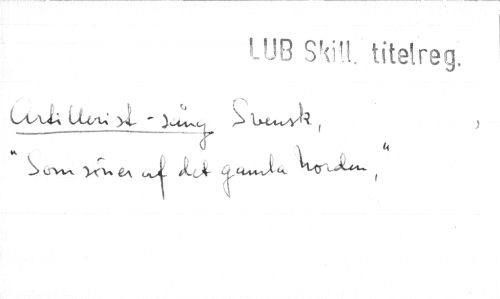 LUB Skill. titelreg.
Artillerist-sång Svensk,
"Som söner af det gamla Norden,"